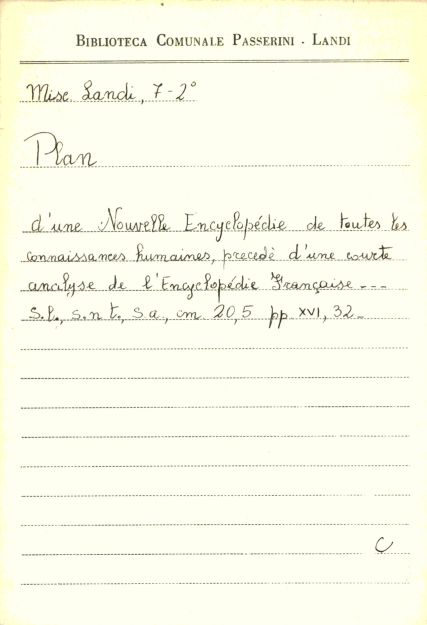 BIBLIOTECA COMUNALE PASSERINI - LANDI
Misc. Landi, 7-2°
Plan
d'une Nouvelle Encyclopédie de toutes les
connaissances humaines, precedè d'une courte
analyse de l'Encyclopédie Française ---
S.l., s.n.t., s.a., cm 20,5 pp XVI, 32.
C